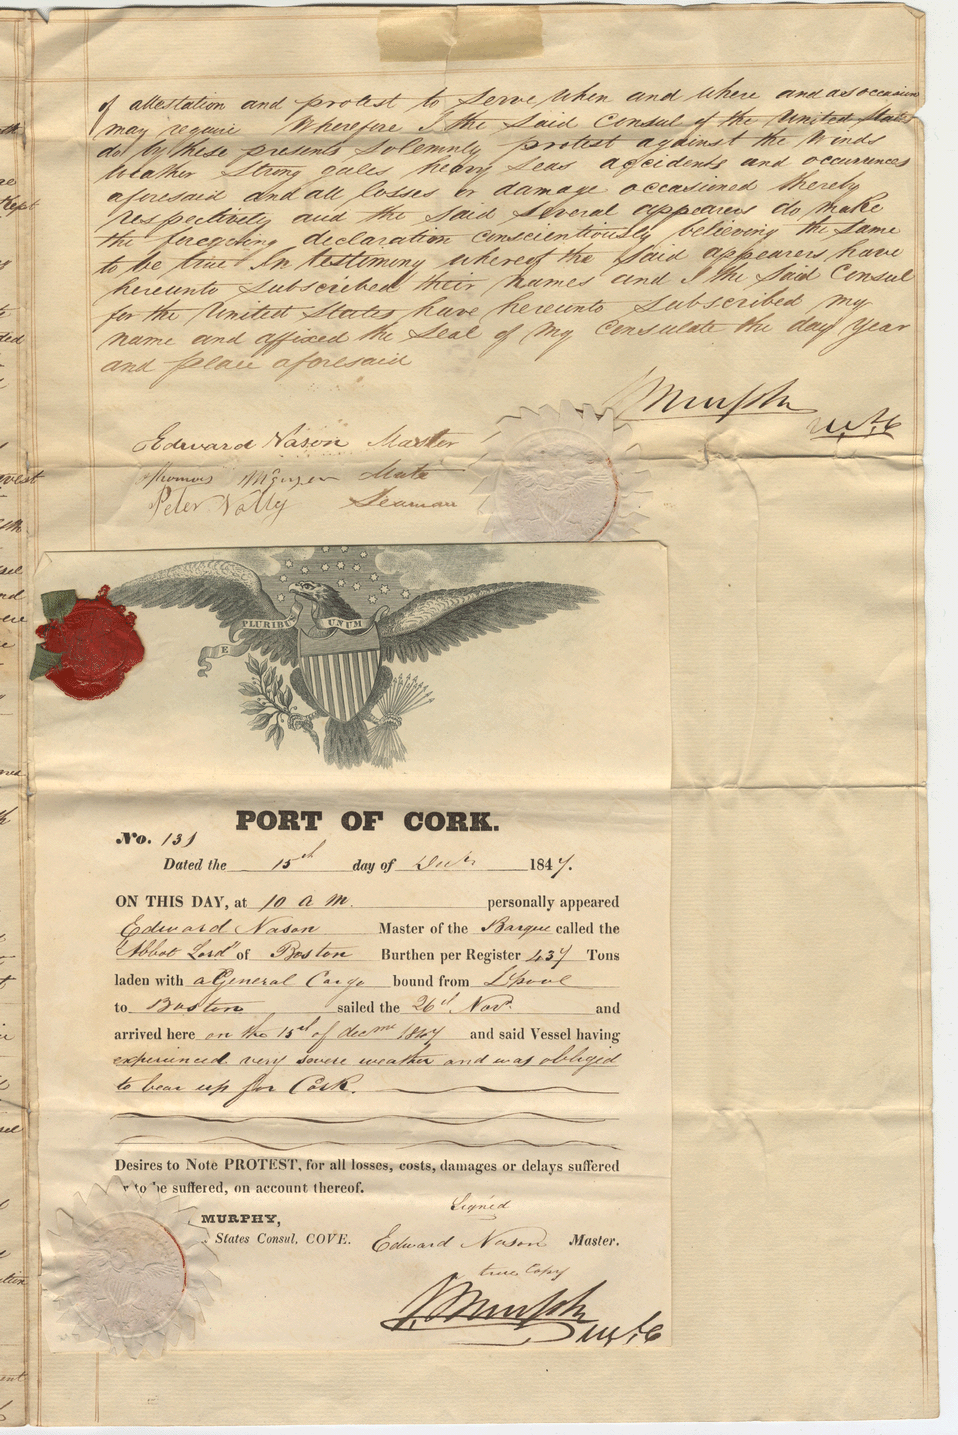 of attestation and protest to serve when and where and as occasion
may require Wherefore I the said Consul of the United States
do by these presents solemnly protest against the Winds
Weather strong gales heavy seas accidents and occurrences
aforesaid and all losses or damage occasioned thereby
respectively and the said several appearers do make
the foregoing declaration conscientiously believing the same
to be true In testimony whereof the said appearers have
hereunto subscribed their names and I the said Consul
for the United States have hereunto subscribed my
name and affixed the seal of my Consulate the day year
and place aforesaid
J Murphy
U.S.C
Edward Nason Master
Thomas Mate
Peter Seaman
E PLURIBUS UNUM
PORT OF CORK.
No. 131
Dated the 15th day of Decr 1847.
ON THIS DAY, at 10 a m. personally appeared
Edward Nason Master of the Barque called the
"Abbot Lord" of Boston Burthen per Register 437 Tons
laden with a General Cargo bound from Lpool
to Boston sailed the 26th Nov. and
arrived here on the 15th of decmr 1847 and said Vessel having
experienced very severe weather and was obliged
to bear up for Cork.
Desires to Note PROTEST, for all losses, costs, damages or delays suffered
to be suffered, on account thereof.
Signed
MURPHY,
States Consul, COVE. Edward Nason Master.
true Copy
J Murphy
U.S.C